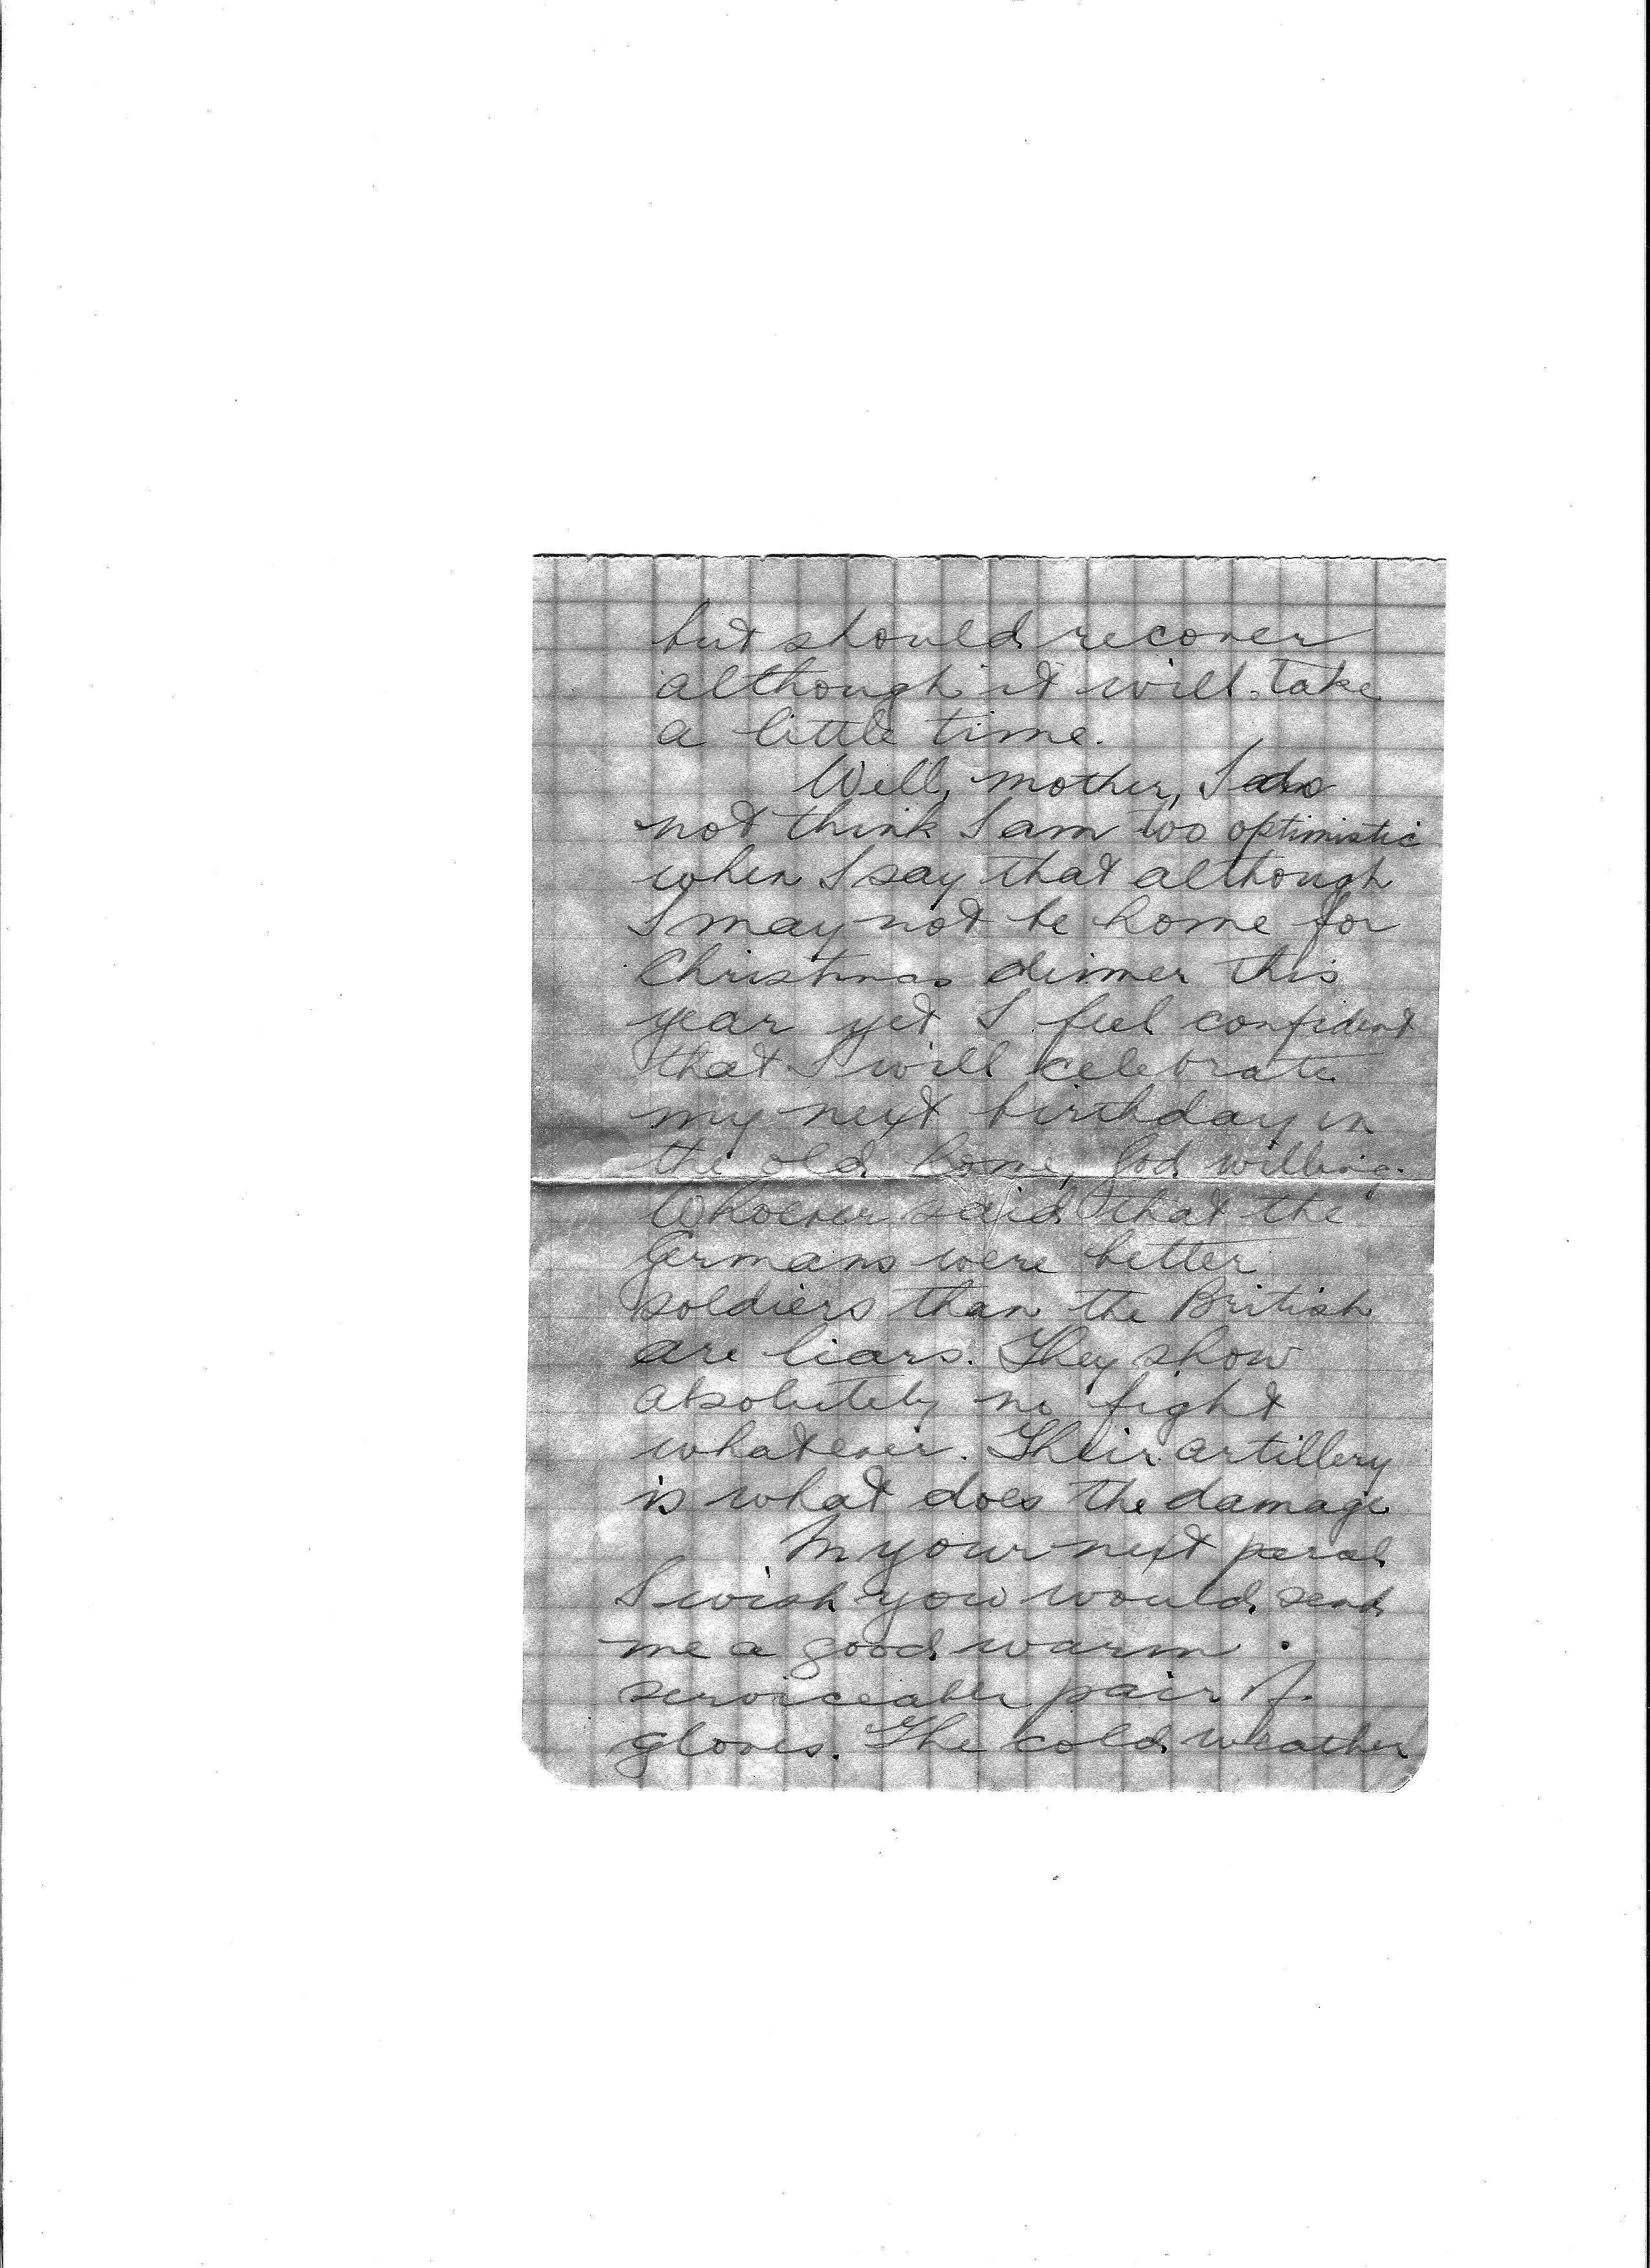 but should recover
although it will take
a little time.
Well, mother, I do
not think I am too optimistic
when I say that although
I may not be home for
Christmas dinner this
year yet I feel confident
that I will celebrate
my next birthday in
the old home, God willing.
Whoever said that the
Germans were better
soldiers than the British
are liars. They show
absolutely no fight
whatever. Their artillery
is what does the damage
In your next
I wish you would send
me a good warm
serviceable pair of
gloves. The cold weather